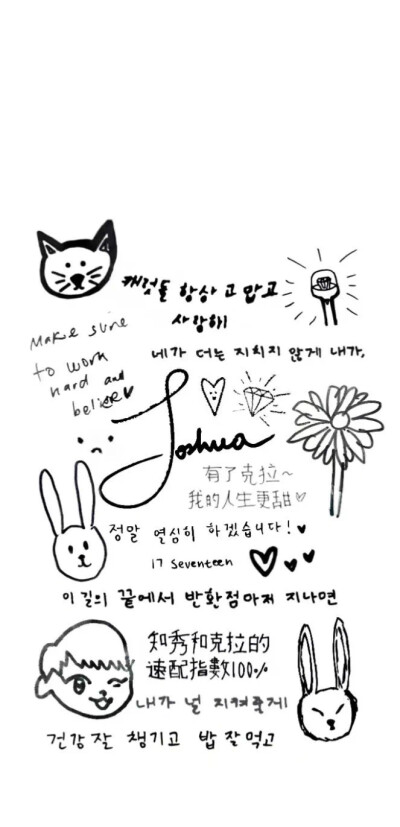 캐럿들 항상 고맙고
사랑해
Make sure
to work
hard and
believe
네가 더는 지치지 않게 내가,
Joshua
有了克拉~
我的人生更甜♡
정말 열심히 하겠습니다!♥
17 Seventeen
이 길의 끝에서 반환점마저 지나면
知秀和克拉的
速配指數100%
내가 널 지켜줄게
건강 잘 챙기고 밥 잘 먹고